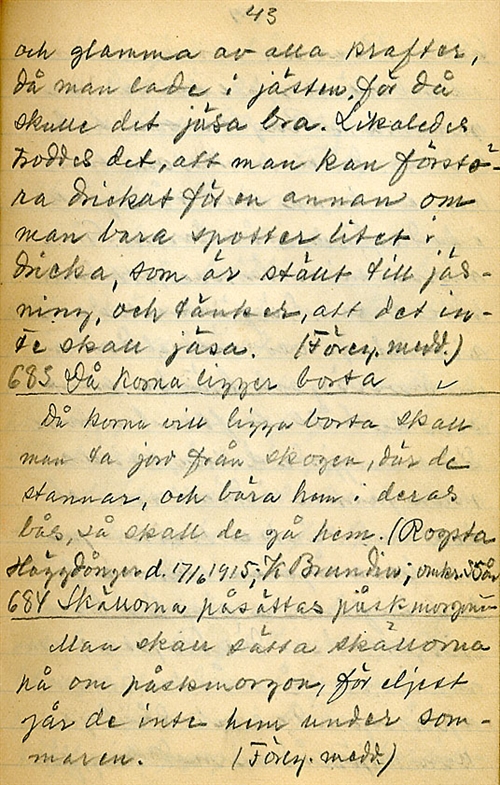 43
och glamma av alla krafter,
då man lade i jästen, för då
skulle det jäsa bra. Likaledes
troddes det, att man kan förstö-
ra drickat för en annan om
man bara spotter litet i
dricka, som är ställt till jäs-
ning, och tänker, att det in-
te skall jäsa. (Föreg. medd.)
683 Då korna ligger borta
Då korna vill ligga borta skall
man ta jord från skogen, där de
stannar, och bära hem i deras
bås, så skall de gå hem. (Rogsta
Häggdånger d. 17/6 1915; K Brundin; omkr. 50 år
684 Skällorna påsättas påskmorgonen
Man skall sätta skällorna
på om påskmorgon, för eljest
går de inte hem under som-
maren. (Föreg. medd.)